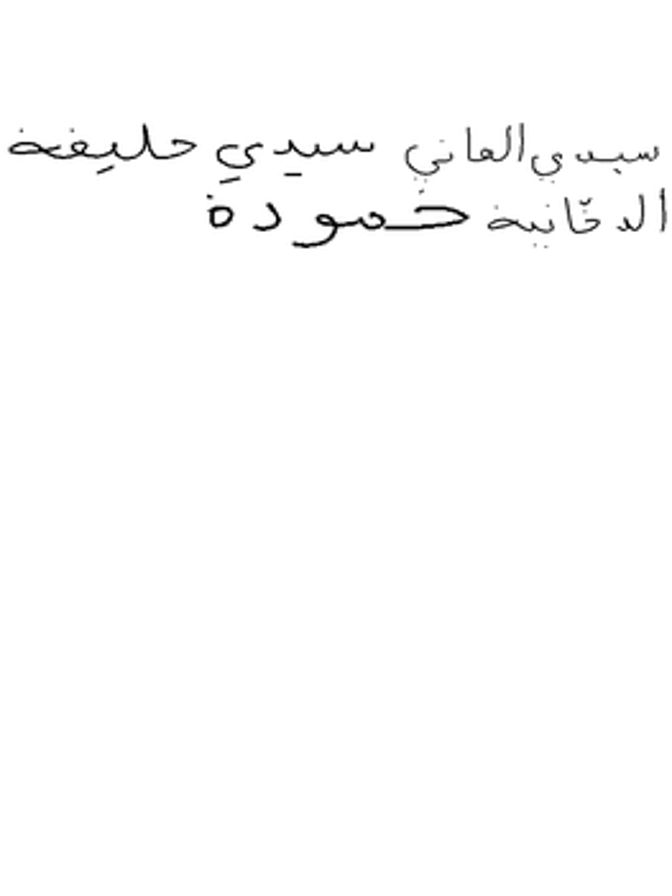 سيدي العاني سيدي خليفة
الدخانية حمودة